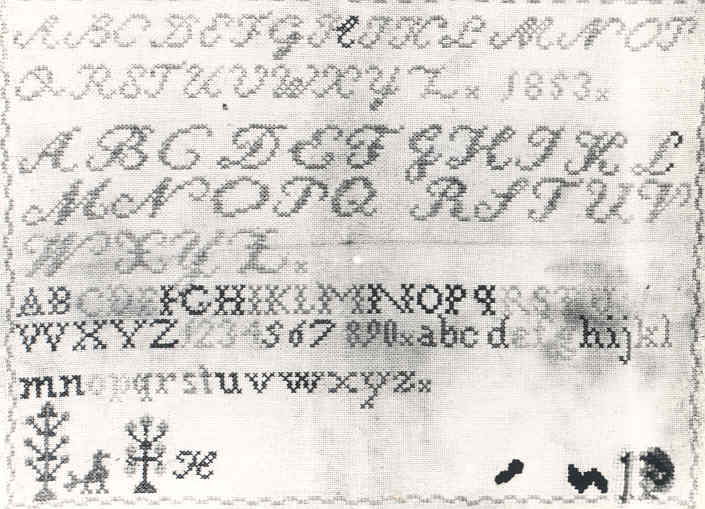 ABCDEFGHIKLMNOP
QRSTUVWXYZ× 1853×
ABCDEFGHIKL
MNOPQRSTUV
WXYZ×
ABCDEFGHIKLMNOPQRSTU
VWXYZ1234567890×abcdefghijkl
mnopqrstuvwxyz×
H